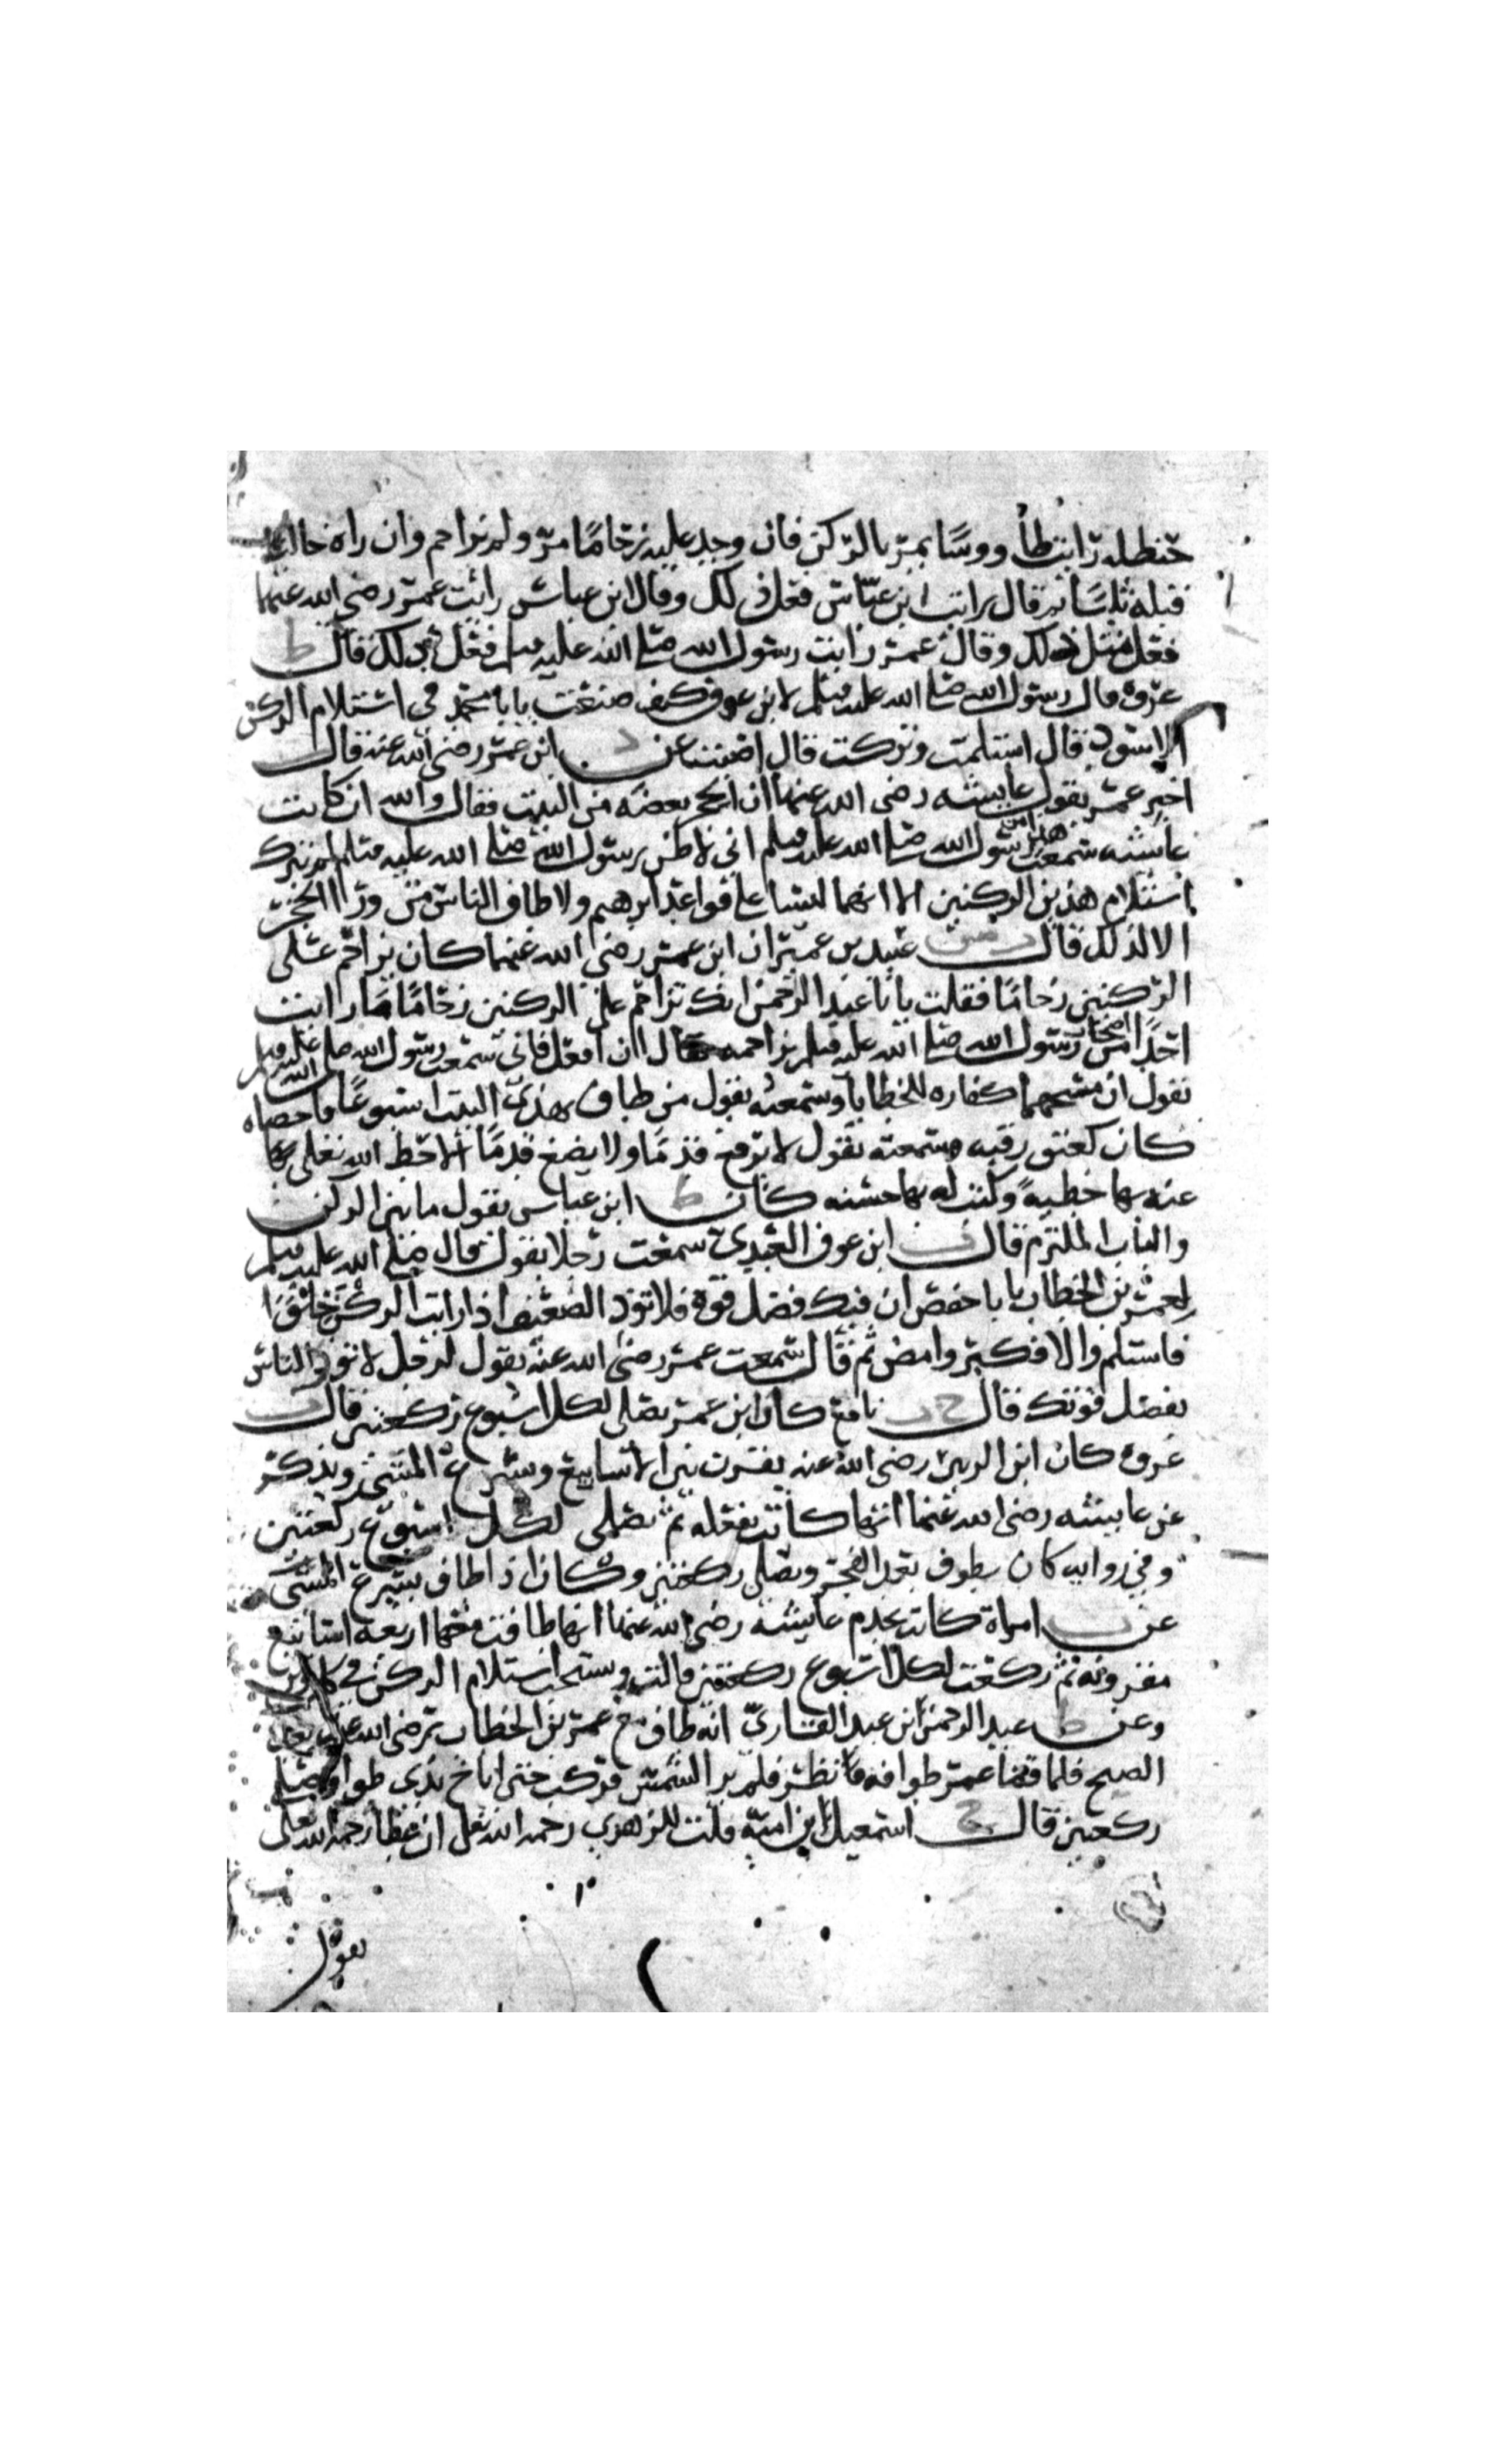 حنظله رايت طاووسا يمر بالركن فان وجد عليه زحاما مر ولم يزاحم وان راه خاليا
قبله ثلاثا ثم قال رايت ابن عباس فعل ذلك وقال ابن عباس رايت عمر رضي الله عنهما
فعل مثل ذلك وقال عمر رايت رسول الله صلى الله عليه وسلم فعل ذلك قال ط
عروه قال رسول الله صلى الله عليه وسلم لابن عوف كيف صنعت يابا محمد في استلام الركن
الاسود قال استلمت وتركت قال اصبت عن د ابن عمر رضي الله عنه قال
اخبر عمر بقول عايشه رضي الله عنها ان الحجر بعضه من البيت فقال والله ان كانت
عايشه سمعت هذا من رسول الله صلى الله عليه وسلم اني لاظن رسول الله صلى الله عليه وسلم لم يترك
استلام هذين الركنين الا انهما ليسا على قواعد ابرهيم ولا طاف الناس من ورا الحجر
الا لذلك قال عبيد بن عمير ان ابن عمر رضي الله عنهما كان يزاحم على
الركنين زحاما فقلت يابا عبد الرحمن انك تزاحم على الركنين زحاما ما رايت
احدا من اصحاب رسول الله صلى الله عليه وسلم يزاحمه قال ان افعل فاني سمعت رسول الله صلى الله عليه وسلم
يقول ان مسحهما كفاره للخطايا وسمعته يقول من طاف بهذا البيت اسبوعا فاحصاه
كان كعتق رقبه وسمعته يقول لا يرفع قدما ولا يضع قدما الا حط الله تعلى
عنه بها خطيه وكتب له بها حسنه كان ط ابن عباس يقول ما بين الركن
والباب الملتزم قال ابن عوف العبدي سمعت رجلا يقول قال صلى الله عليه وسلم
لعمر بن الخطاب يابا حفص ان فيك فضل قوه فلا تؤذ الضعيف اذا رايت الركن خلوا
فاستلم والا فكبر وامض ثم قال سمعت عمر رضي الله عنه يقول لرجل لا تؤذ الناس
بفضل قوتك فقال نافع كان ابن عمر يصلي لكل اسبوع ركعتين قال
عروه كان ابن الزبير رضي الله عنه يقرن بين الاسابيع ويسرع المشي ويذكر
عن عايشه رضي الله عنها انها كانت تفعله ثم تصلي لكل اسبوع ركعتين
وفي روايه كان يطوف بعد الفجر ويصلي ركعتين وكان اذا طاف يسرع المشي
عن امراة كانت تخدم عايشه رضي الله عنها انها طافت معها اربعه اسابيع
مقرونه ثم ركعت لكل اسبوع ركعتين قالت ويستحب استلام الركن في كل وتر
وعن ط عبد الرحمن ابن عبد القاري انه طاف مع عمر بن الخطاب رضي الله عنه بعد
الصبح فلما قضا عمر طوافه نظر فلم ير الشمس فركب حتى اناخ بذي طوا فصلى
ركعتين قال خ اسمعيل ابن اميه قلت للزهري رحمه الله تعلى ان عطا رحمه الله تعالى
يقول